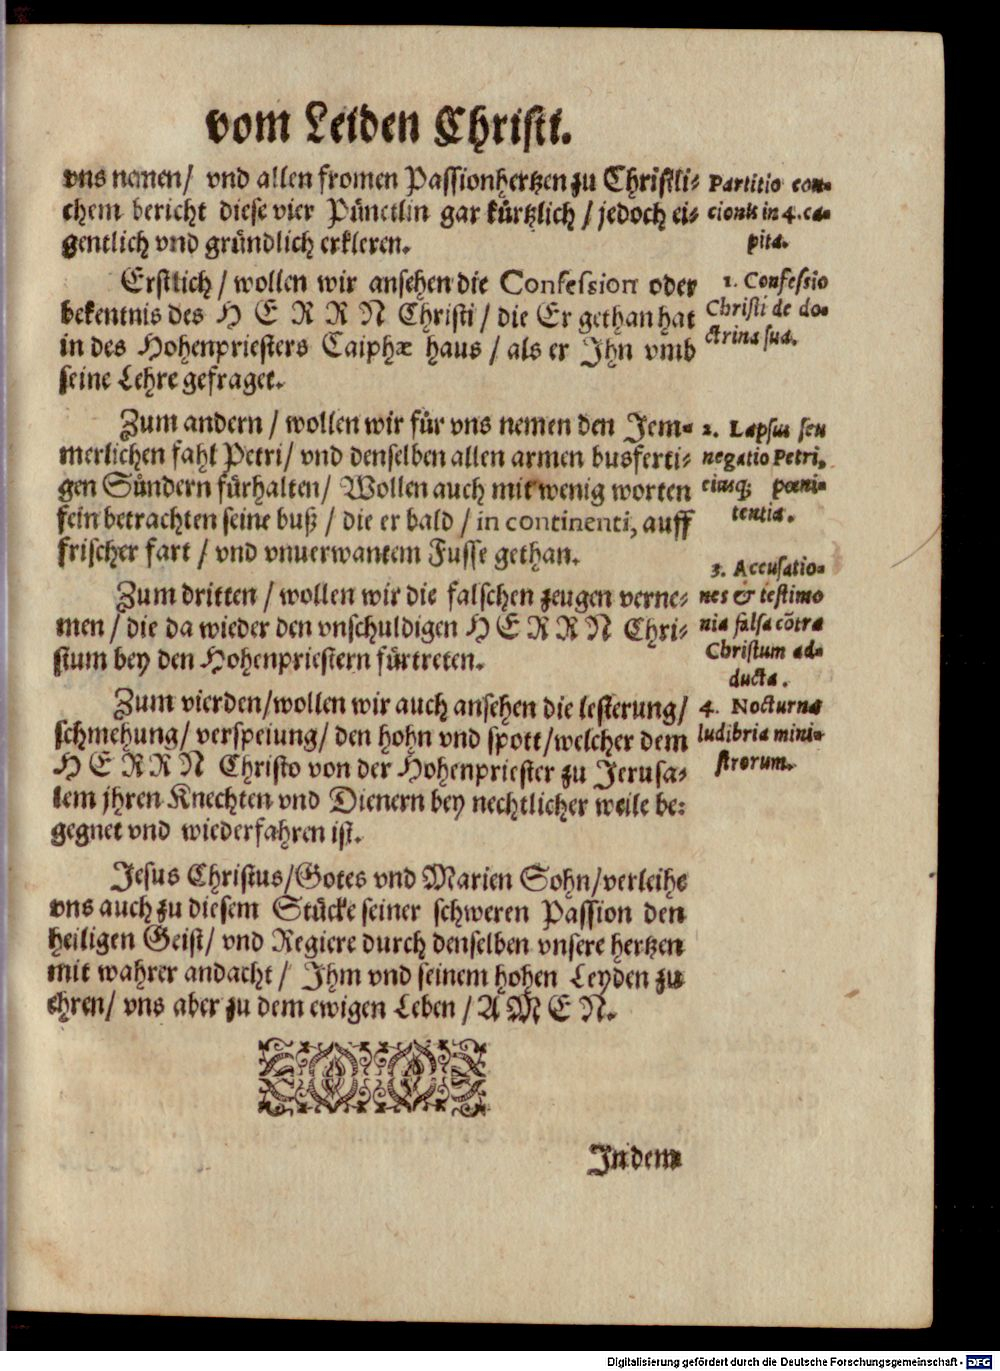 vom Leiden Christi.
vns nemen/ vnd allen fromen Passionhertzen zu Christli-
chem bericht diese vier Pünctlin gar kürtzlich / jedoch ei-
gentlich vnd gründlich erkleren.
Partitio con-
cionis in 4. ca-
pita.
Erstlich / wollen wir ansehen die Confession oder
bekentnis des HERRN Christi / die Er gethan hat
in des Hohenpriesters Caiphæ haus / als er Ihn vmb
seine Lehre gefraget.
1. Confessio
Christi de do-
ctrina sua.
Zum andern / wollen wir für vns nemen den Jem-
merlichen fahl Petri/ vnd denselben allen armen busferti-
gen Sündern fürhalten/ Wollen auch mit wenig worten
fein betrachten seine buß / die er bald / in continenti, auff
frischer fart / vnd vnuerwantem Fusse gethan.
2. Lapsus seu
negatio Petri,
eiusq; pœni-
tentia.
Zum dritten / wollen wir die falschen zeugen verne-
men / die da wieder den vnschuldigen HERRN Chri-
stum bey den Hohenpriestern fürtreten.
3. Accusatio-
nes & testimo
nia falsa cõtra
Christum ad-
ducta.
Zum vierden/wollen wir auch ansehen die lesterung/
schmehung/ verspeiung/ den hohn vnd spott/welcher dem
HERRN Christo von der Hohenpriester zu Jerusa-
lem jhren Knechten vnd Dienern bey nechtlicher weile be-
gegnet vnd wiederfahren ist.
4. Nocturna
ludibria mini-
strorum.
Jesus Christus/Gotes vnd Marien Sohn/verleihe
vns auch zu diesem Stücke seiner schweren Passion den
heiligen Geist/ vnd Regiere durch denselben vnsere hertzen
mit wahrer andacht / Ihm vnd seinem hohen Leyden zu
ehren/ vns aber zu dem ewigen Leben / AMEN.
In dem
Digitalisierung gefördert durch die Deutsche Forschungsgemeinschaft - DFG